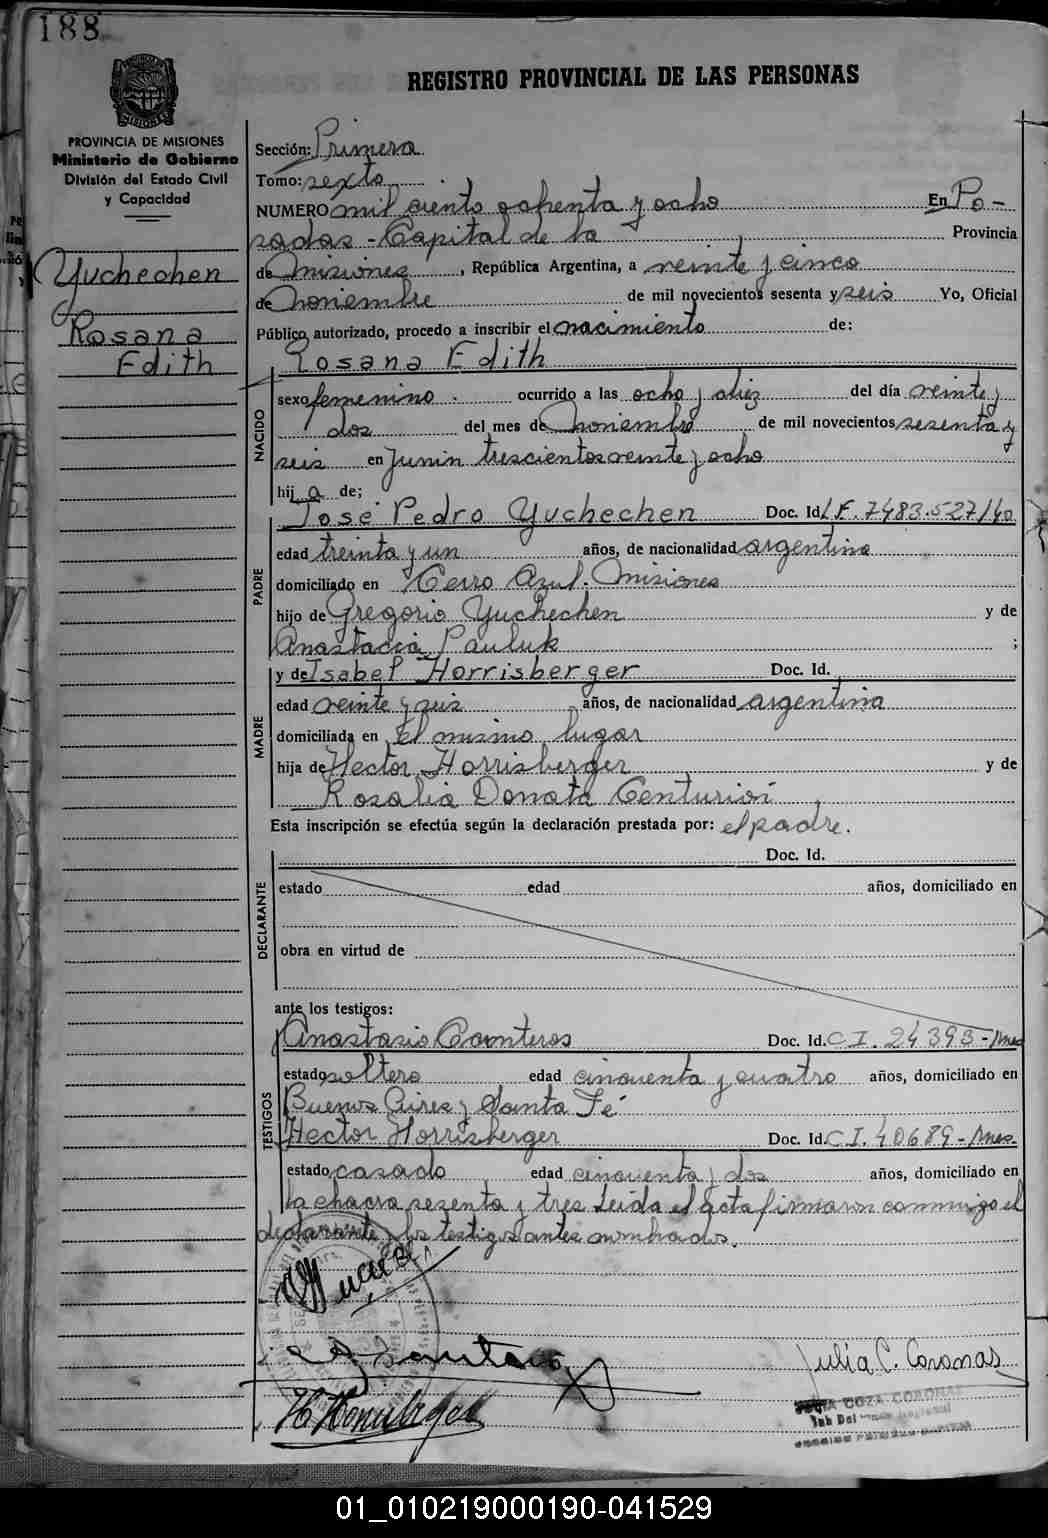 188
REGISTRO PROVINCIAL DE LAS PERSONAS
MISIONES
PROVINCIA DE MISIONES
Ministerio de Gobierno
División del Estado Civil
y Capacidad
Yuchechen
Rosana
Edith
Sección: Primera
Tomo: sexto
NUMERO mil ciento ochenta y ocho En Po-
sadas - Capital de la Provincia
de Misiones, República Argentina, a veinte y cinco
de noviembre de mil novecientos sesenta y seis Yo, Oficial
Público autorizado, procedo a inscribir el nacimiento de:
Rosana Edith
NACIDO
sexo femenino. ocurrido a las ocho y diez del día veinte y
dos del mes de noviembre de mil novecientos sesenta y
seis en Junin trescientos veinte y ocho
hij a de;
PADRE
José Pedro Yuchechen Doc. Id. 7483.527/40
edad treinta y un años, de nacionalidad argentina
domiciliado en Cerro Azul. Misiones
hijo de Gregorio Yuchechen y de
Anastacia Pauluk ;
MADRE
y de Isabel Horrisberger Doc. Id.
edad veinte y seis años, de nacionalidad argentina
domiciliada en el mismo lugar
hija de Hector Horrisberger y de
Rosalia Donata Centurion
Esta inscripción se efectúa según la declaración prestada por: el padre.
DECLARANTE
Doc. Id.
estado edad años, domiciliado en
obra en virtud de
ante los testigos:
TESTIGOS
Anastasio Doc. Id. C.I. 24393-Mnes
estado soltero edad cincuenta y cuatro años, domiciliado en
Buenos Aires y Santa Fé
Hector Horrisberger Doc. Id. C.I. 40689-Mnes.
estado casado edad cincuenta y dos años, domiciliado en
la chacra sesenta y tres Leida el acta firmaron conmigo el
declarante y los testigos antes nombrados.
Julia C. Coronas
JULIA COZA CORONAS
01_010219000190-041529